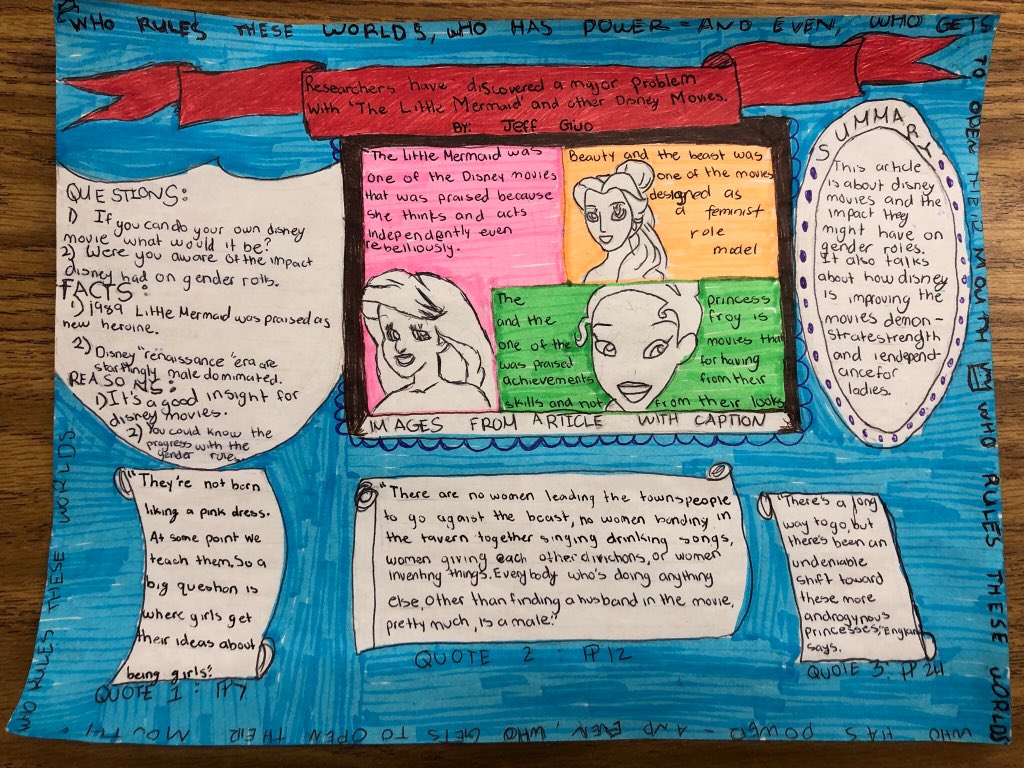 WHO RULES THESE WORLDS, WHO HAS POWER - AND EVEN, WHO GETS
TO OPEN THEIR MOUTH
WHO RULES THESE WORLDS
WHO HAS POWER - AND EVEN, WHO GETS TO OPEN THEIR MOUTH
WHO RULES THESE WORLDS
Researchers have discovered a major problem
With 'The Little Mermaid' and other Disney Movies.
BY: Jeff Guo
QUESTIONS:
1) If you can do your own disney
movie what would it be?
2) Were you aware of the impact
disney had on gender rolls.
FACTS:
1) 1989 Little Mermaid was praised as
new heroine.
2) Disney "renaissance" era are
startlingly male dominated.
REASONS:
1) It's a good insight for
disney movies.
2) You could know the
progress with the
gender role.
The little Mermaid was
one of the Disney movies
that was praised because
she thinks and acts
independently even
rebelliously.
Beauty and the beast was
one of the movies
designed as
a feminist
role
model
The princess
and the frog is
one of the movies that
was praised for having
achievements from their
skills and not from their looks
IMAGES FROM ARTICLE WITH CAPTION
SUMMARY
This article
is about disney
movies and the
impact they
might have on
gender roles.
It also talks
about how disney
is improving the
movies demon-
strate strength
and iendepend
ance for
ladies.
"They're not born
liking a pink dress.
At some point we
teach them. So a
big question is
where girls get
their ideas about
being girls".
QUOTE 1: PP7
"There are no women leading the townspeople
to go agaist the beast, no women bonding in
the tavern together singing drinking songs,
women giving each other divichons, or women
inventing things. Everybody who's doing anything
else, other than finding a husband in the movie,
pretty much, is a male."
QUOTE 2: PP12
"There's a long
way to go, but
there's been an
undeniable
shift toward
these more
androgynous
princesses," England
says.
QUOTE 3: PP24